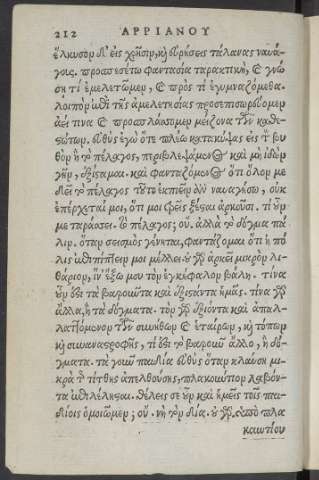 212 ΑΡΡΙΑΝΟΥ
ἕλκυσον δ' εἰς χρῆσιν, καὶ εὑρήσεις τάλανας ναυά-
γους. προπεσέτω φαντασία ταρακτικὴ, καὶ γνώ
ση τί ἐμελετῶμεν, καὶ πρὸς τί ἐγυμναζόμεθα.
λοιπὸν ὑπὸ τῆς ἀμελετησίας προσεπισωρεύομεν
ἀεί τινα καὶ προσπλάσσομεν μείζονα τῶν καθε-
στώτων. εὐθὺς ἐγὼ ὅτε πλέω κατακύψας εἰς τὸν βυ
θὸν ἢ τὸ πέλαγος, περιβλεψάμενος καὶ μὴ ἰδὼν
γῆν, ἐξίσταμαι. καὶ φανταζόμενος ὅτι ὅλον με
δεῖ τὸ πέλαγος τοῦτο ἐκπιεῖν ἂν ναυαγήσω, οὐκ
ἐπέρχεταί μοι, ὅτι μοι τρεῖς ξέσται ἀρκοῦσι. τί οὖν
με ταράσσει. τὸ πέλαγος; οὔ. ἀλλὰ τὸ δόγμα πά
λιν. ὅταν σεισμὸς γένηται, φαντάζομαι ὅτι ἡ πό
λις ἐπιπίπτειν μοι μέλλει. οὐ γὰρ ἀρκεῖ μικρὸν λι-
θάριον, ἵν' ἔξω μου τὸν ἐγκέφαλον βάλῃ. τίνα
οὖν ἐστι τὰ βαροῦντα καὶ ἐξιστάντα ἡμᾶς. τίνα γὰρ
ἄλλα, ἢ τὰ δόγματα. τὸν γὰρ ἐξιόντα καὶ ἀπαλ-
λαττόμενον τῶν συνήθων καὶ ἑταίρων, καὶ τόπων
καὶ συναναστροφῆς, τί ἐστι τὸ βαροῦν ἄλλο, ἢ δό-
γματα. τὰ γοῦν παιδία εὐθὺς ὅταν κλαύσῃ μι-
κρὰ τῆς τίτθης ἀπελθούσης, πλακούντιον λαβόν-
τα ἐπιλέλησται. θέλεις σε οὖν καὶ ἡμεῖς τοῖς παι-
δίοις ὁμοιῶμεν; οὔ. νὴ τὸν δία. οὐ γὰρ ὑπὸ πλα
κουντίου